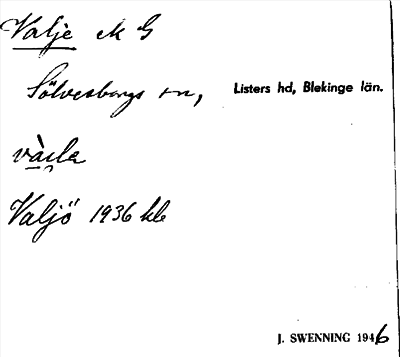 Valje M G
Sölvesborgs sn, Listers hd, Blekinge län.
Valjö 1936 kb
J. SWENNING 1946